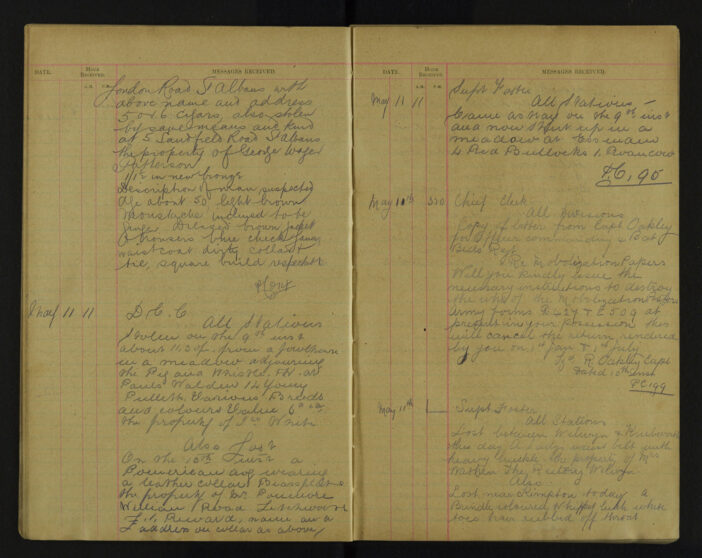 DATE.
HOUR RECEIVED.
MESSAGES RECEIVED.
A.M. P.M.
London Road St Albans with
above name and address
5 or 6 cigars, also stolen
by same means and kind
at 5 Sandfield Road St Albans
the property of George
Patterson
1/1½ in new bronze
Description of man suspected
age about 50 light brown
moustache inclined to be
brown jacket
trousers check fancy
waistcoat dirty collar &
tie, square build respectable
May 11 11
D C C
All Stations
Stolen on the 9th inst
about 11.30 from a fowlhouse
in a meadow adjoining
the Pig and Whistle P.H. at
Pauls Walden 14 Young
Pullets Various Breeds
and colours Value
the property of White
Also Lost
On the 10th Inst a
Pomeranian dog wearing
a leather collar Brassplate
the property of Dr
William Road Letchworth
Reward, name and
address on collar as above
DATE.
HOUR RECEIVED.
MESSAGES RECEIVED.
A.M. P.M.
May 11 11
Supt Foster
All Stations
Came as stray on the 9th inst
and now shut up in a
meadow at
4 Red Bullocks 1 Roan cow
P.C. 90
May 11th 3.30
Chief Clerk
All Divisions
Copy of letter from Capt Oakley
for Officer commanding 4 Batt
Beds Regt
Re Mobolization Papers
Will you kindly issue the
necessary instructions to destroy
the whole of the Mobilization
Army Forms & E 509 at
present in your possession this
will cancel the return rendered
by you on 1st Jan & 1st July
R. Oakley Capt
Dated 10th Inst
PC 199
May 11th
Supt Foster
All Stations
Lost between Welwyn & Knebworth
this day a belt with
heavy buckle the property of Mrs
The Rectory Welwyn
Also
Lost near Kimpton today a
Brindle coloured Whippet with white
toes hair rubbed off throat